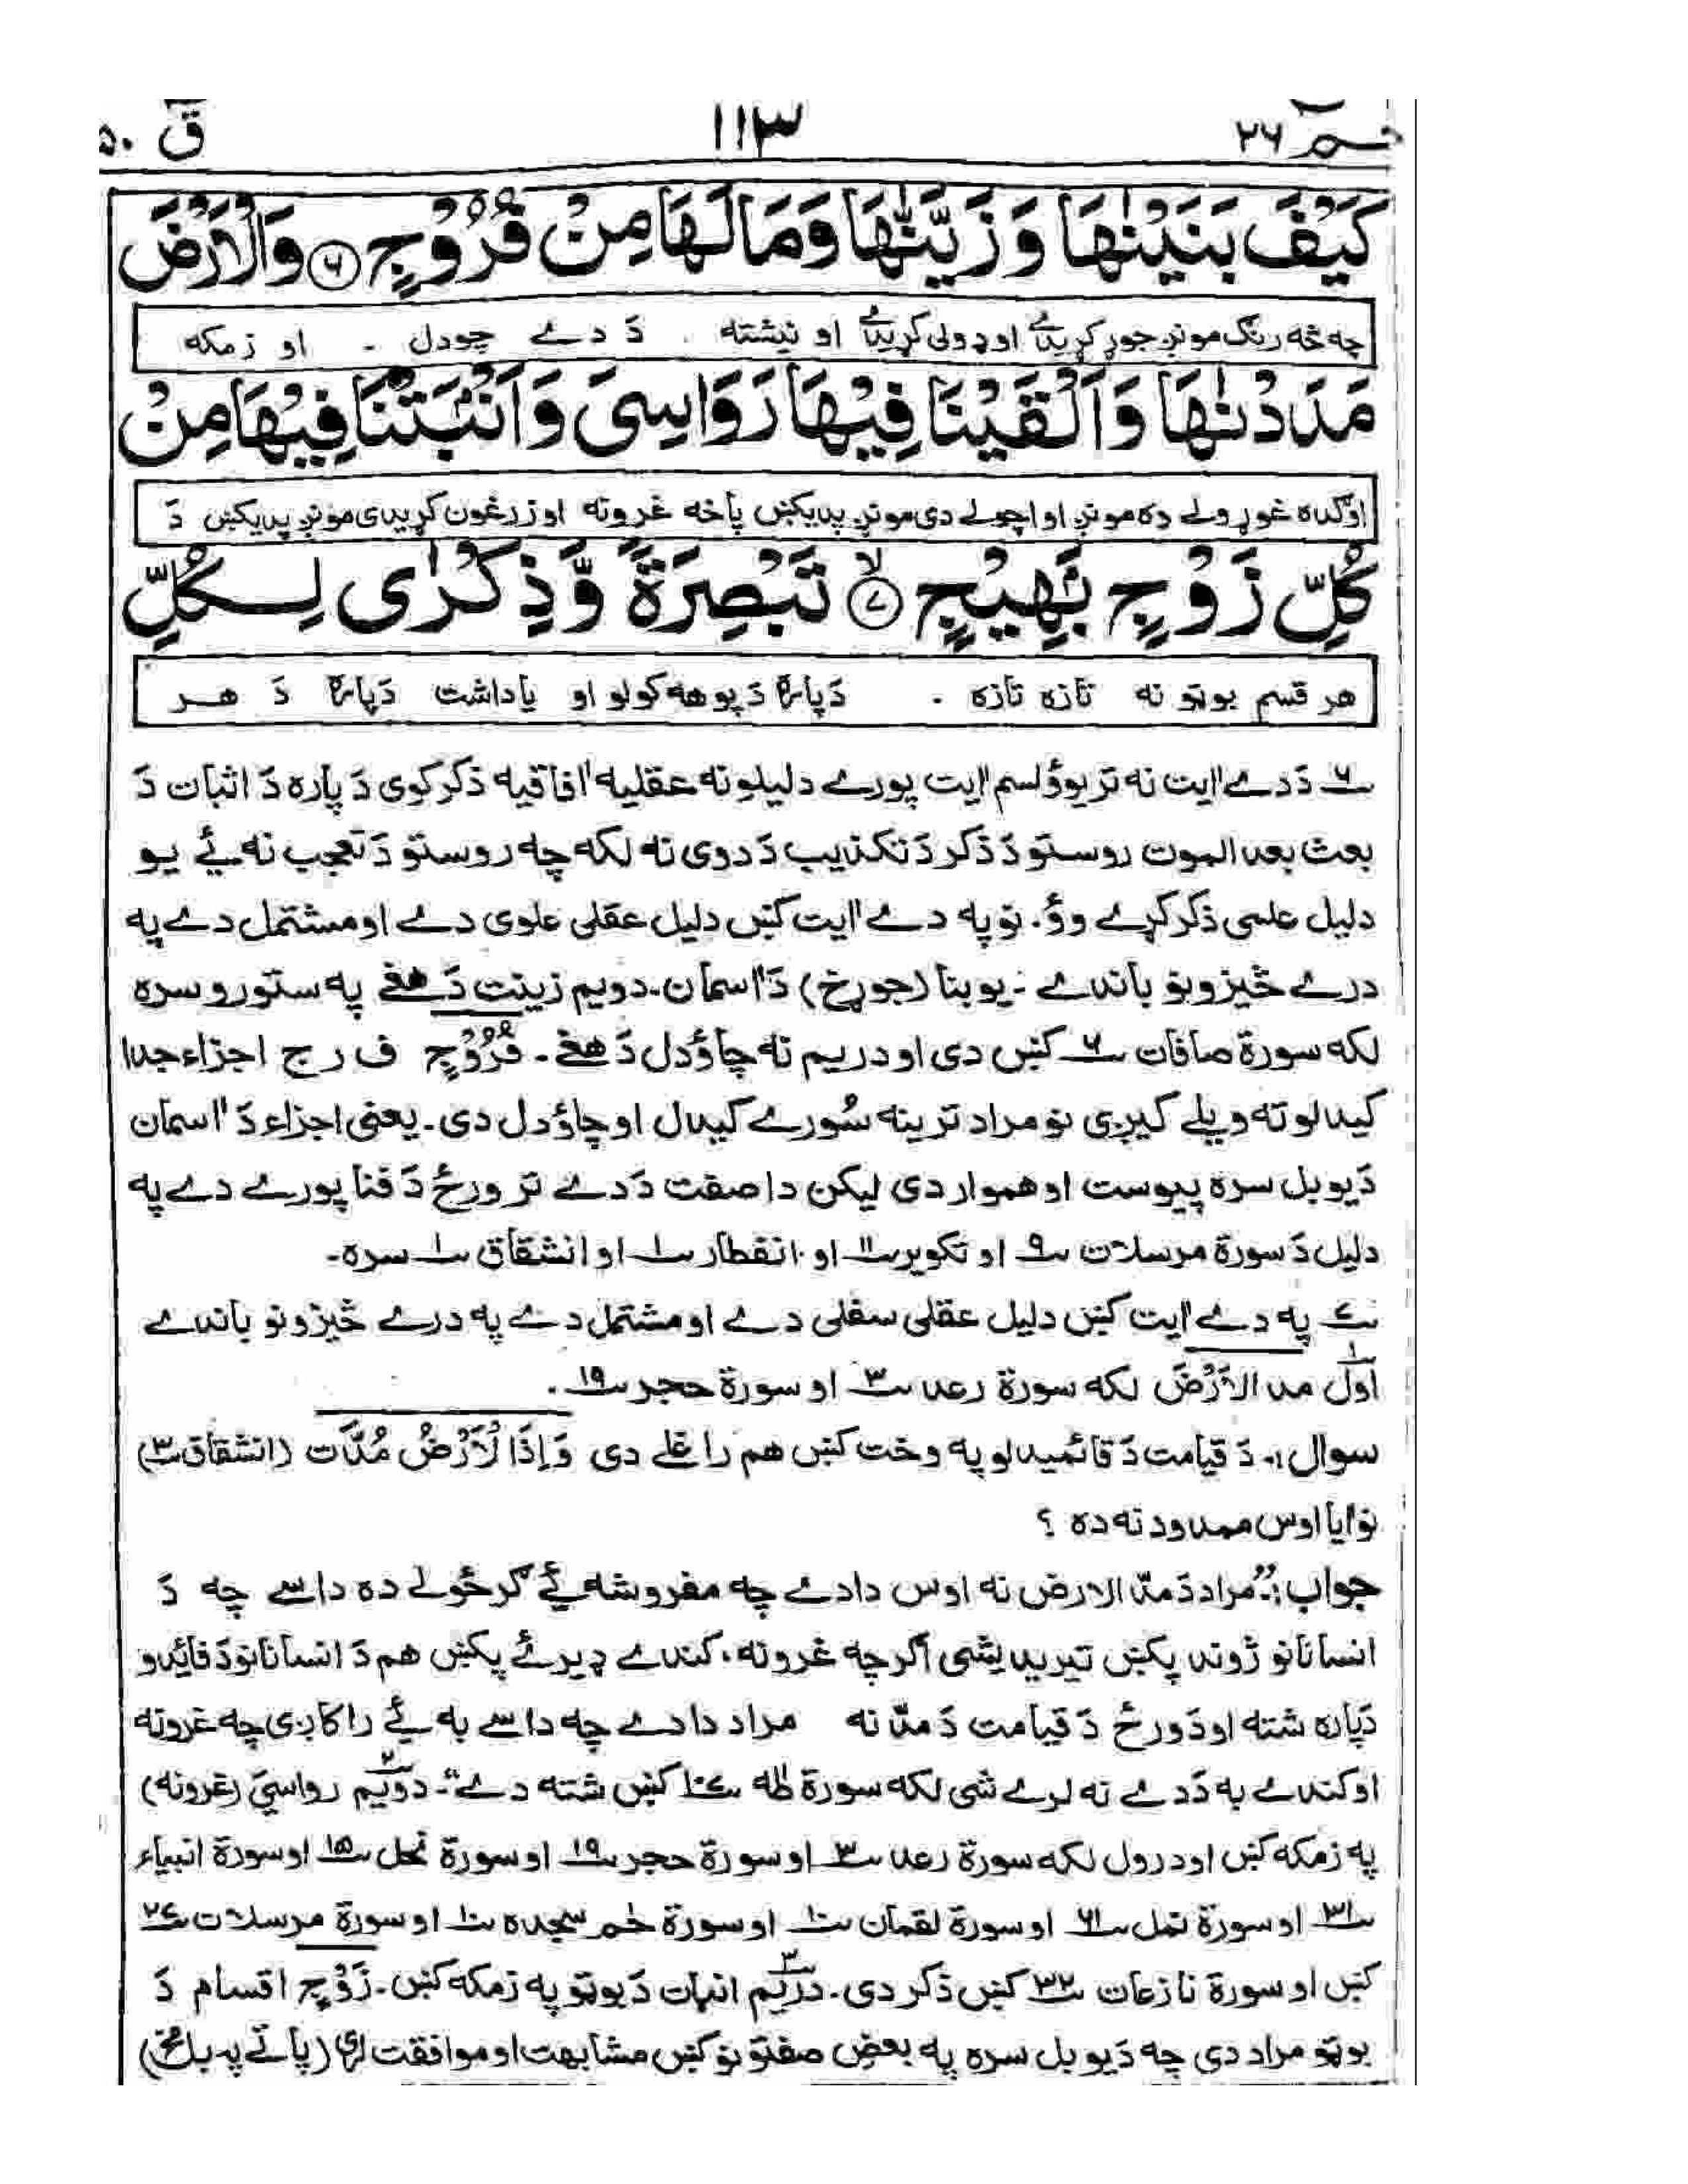 حٰم ٢٦ ١١٣ ق ٥٠
كَيْفَ بَنَيْنٰهَا وَزَيَّنّٰهَا وَمَا لَهَا مِنْ فُرُوْجٍ ۶ وَالْاَرْضَ
چه څه رنګ مونږ جوړ کړیدے او ډولی کړیدے او نیشته . دَ دے چودل - او زمکه
مَدَدْنٰهَا وَاَلْقَيْنَا فِيْهَا رَوَاسِىَ وَاَنْۢبَتْنَا فِيْهَا مِنْ
اوګده غوړولے ده مونږ او اچولے دی مونږ پدیکښ پاخه غرونه او زرغون کړیدی مونږ پدیکښ دَ
كُلِّ زَوْجٍۢ بَهِيْجٍ ۷ لا تَبْصِرَةً وَّذِكْرٰى لِكُلِّ
هر قسم بوټو نه تازه تازه . دَپاره دَ پوهه کولو او یاداشت دَپاره دَ هر
۶ دَ دے اٰیت نه تر یوؤلسم اٰیت پورے دلیلونه عقلیه اٰفاقیه ذکر کوی دَ پاره دَ اثبات دَ
بعث بعد الموت روستو دَ ذکر دَ تکذیب دَ دوی نه لکه چه روستو دَ تعجب نه ئے یو
دلیل علمی ذکر کړے وؤ. نو په دے اٰیت کښ دلیل عقلی علوی دے او مشتمل دے په
درے څیزونو باندے :- یو بنا (جوړخ) دَ اٰسمان. دویم زینت دَ هغے په ستورو سره
لکه سورة صافات ۶ کښ دی او دریم نه چاؤدل دَ هغے. فُرُوْجٍ ف ر ج اجزاء جدا
کیدلو ته ویلے کیږی نو مراد ترینه سُورے کیدال او چاؤدل دی. یعنی اجزاء دَ اٰسمان
دَ یو بل سره پیوست او هموار دی لیکن دا صفت دَ دے تر ورځ دَ فنا پورے دے په
دلیل دَ سورة مرسلات ۹ او تکویر ۱۱ او انفطار ۱ او انشقاق ۱ سره-
۷ په دے اٰیت کښ دلیل عقلی سفلی دے او مشتمل دے په درے څیزونو باندے
اول ۱ مد الْاَرْضَ لکه سورة رعد ۳ او سورة حجر ۱۹ .
سوال :- دَ قیامت دَ قائمیدلو په وخت کښ هم راغلے دی وَاِذَا الْاَرْضُ مُدَّت (انشقاق ۳)
نو اٰیا اوس ممدود نه ده ؟
جواب :- "مراد دَ مدّ الارض نه اوس دا دے چه مفروشه ئے ګرځولے ده داسے چه دَ
انسانانو ژوند پکښ تیریدیشی اګرچه غرونه، کندے ډیرئے پکښ هم دَ انسانانو دَ فائدو
دَپاره شته او دَ ورځ دَ قیامت دَ مدّ نه مراد دا دے چه داسے به ئے راکاږی چه غرونه
او کندے به دَ دے نه لرے شی لکه سورة طٰه ۱۰۷ کښ شته دے"- دویم ۲ رواسیَ (غرونه)
په زمکه کښ اودرول لکه سورة رعد ۳ او سورة حجر ۱۹ او سورة نحل ۱۵ او سورة انبیاء
۳۱ او سورة نمل ۶۱ او سورة لقمان ۱۰ او سورة حٰم سجده ۱۰ او سورة مرسلات ۲۷
کښ او سورة نازعات ۳۲ کښ ذکر دی. دریم ۳ انبات دَ بوټو په زمکه کښ. زَوْجٍ اقسام دَ
بوټو مراد دی چه دَ یو بل سره په بعض صفتونو کښ مشابهت او موافقت لری (پاتے په بل مخ)